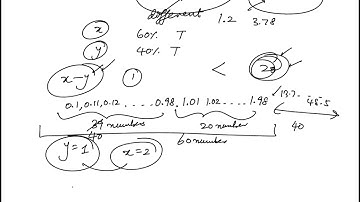 different 1.2 3.78
x 60% T
y 40% T
x-y 1 < 2
0.1, 0.11, 0.12 .... 0.98 . 1.01 1.02 .... 1.98 13.7.. - 48.5
39 numbers 20 number 40
40 60 number
y=1 x=2